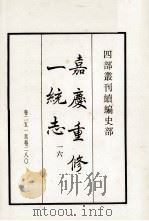 四部叢刊續編史部
嘉慶重修
一統志
一六
卷二五一至卷二八〇